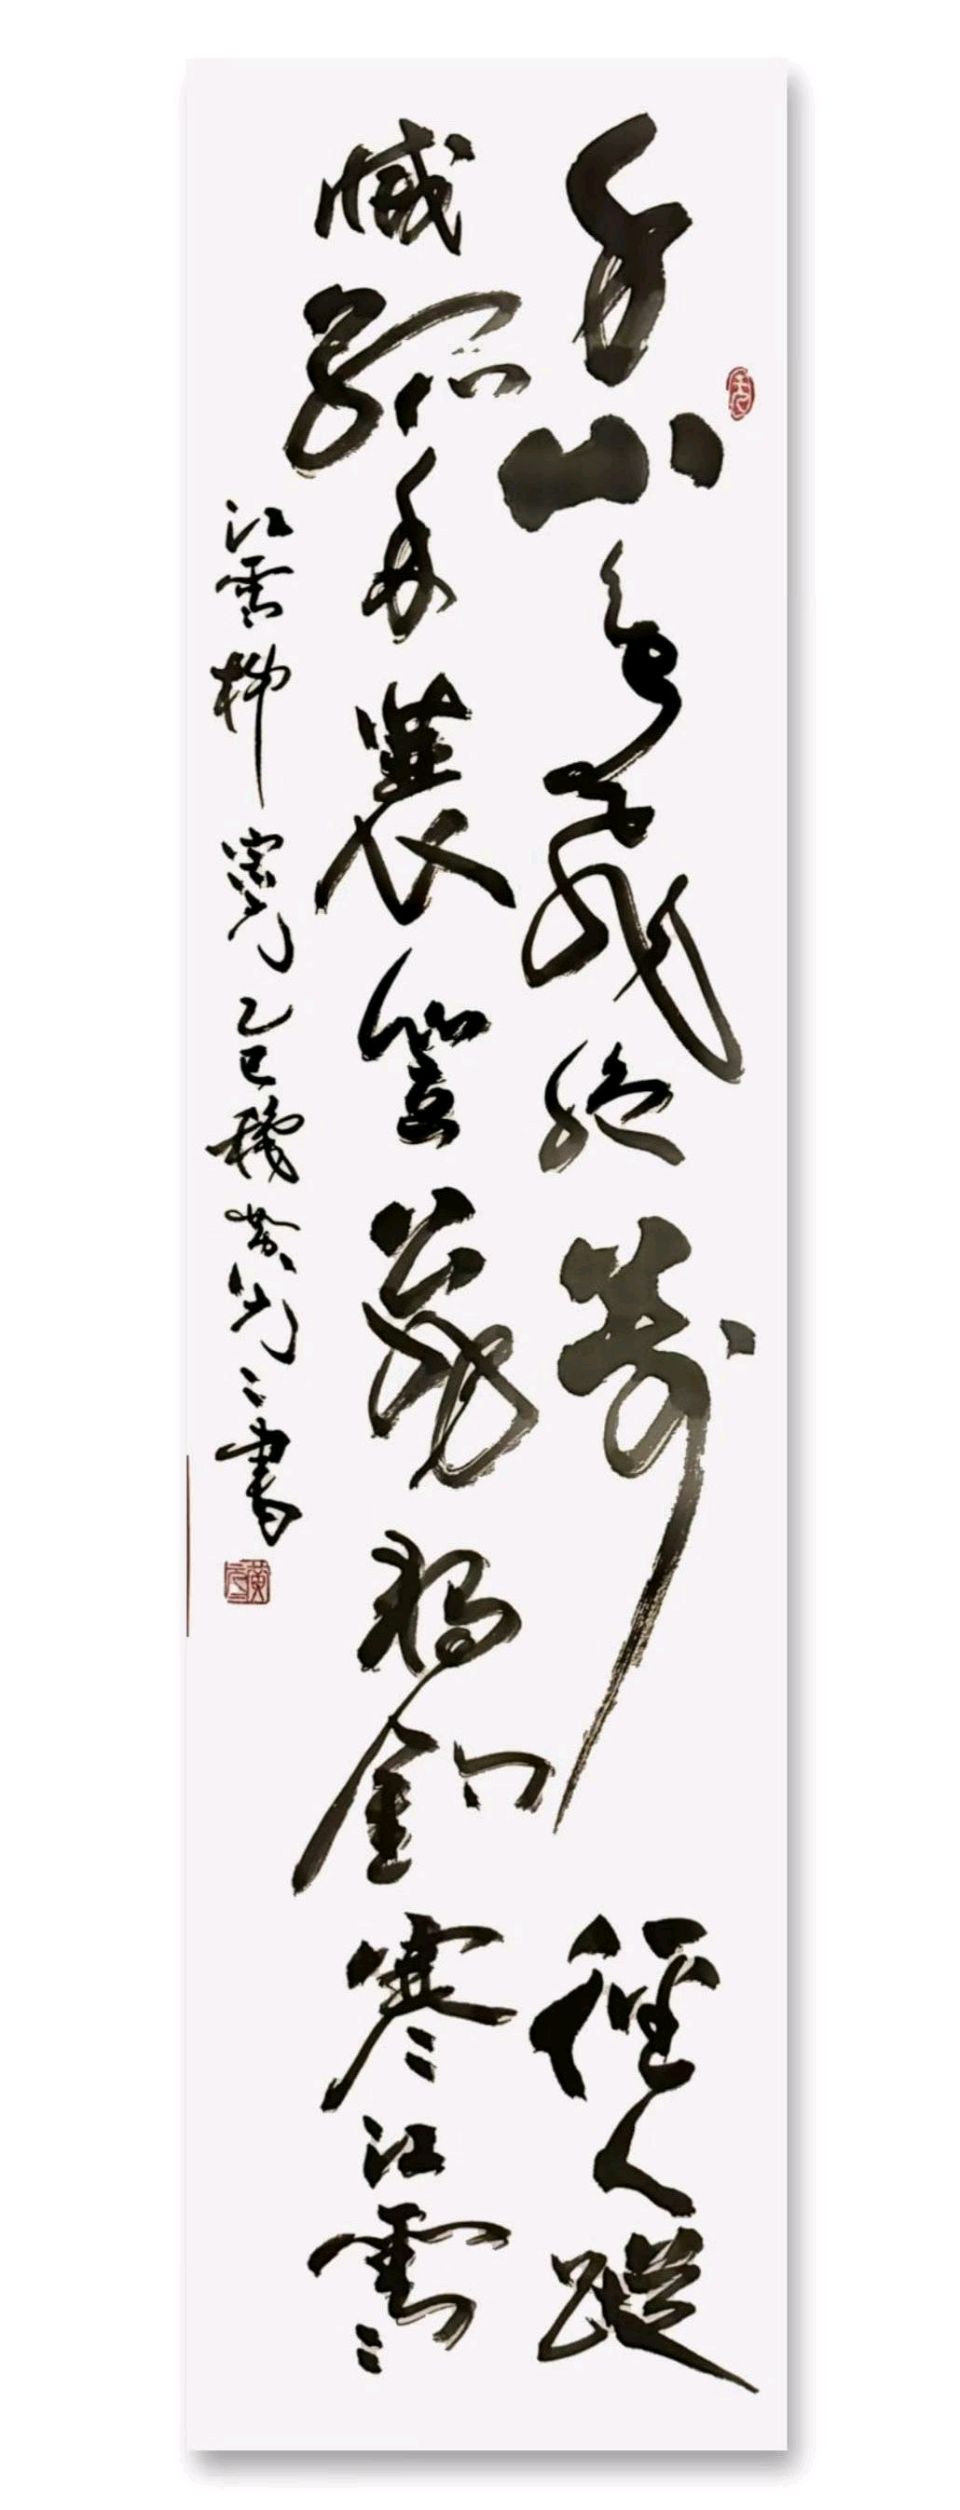 千山鳥飛絕萬徑人蹤
滅孤舟蓑笠翁獨釣寒江雪
江雪柳宗元乙巳秋黃元二書